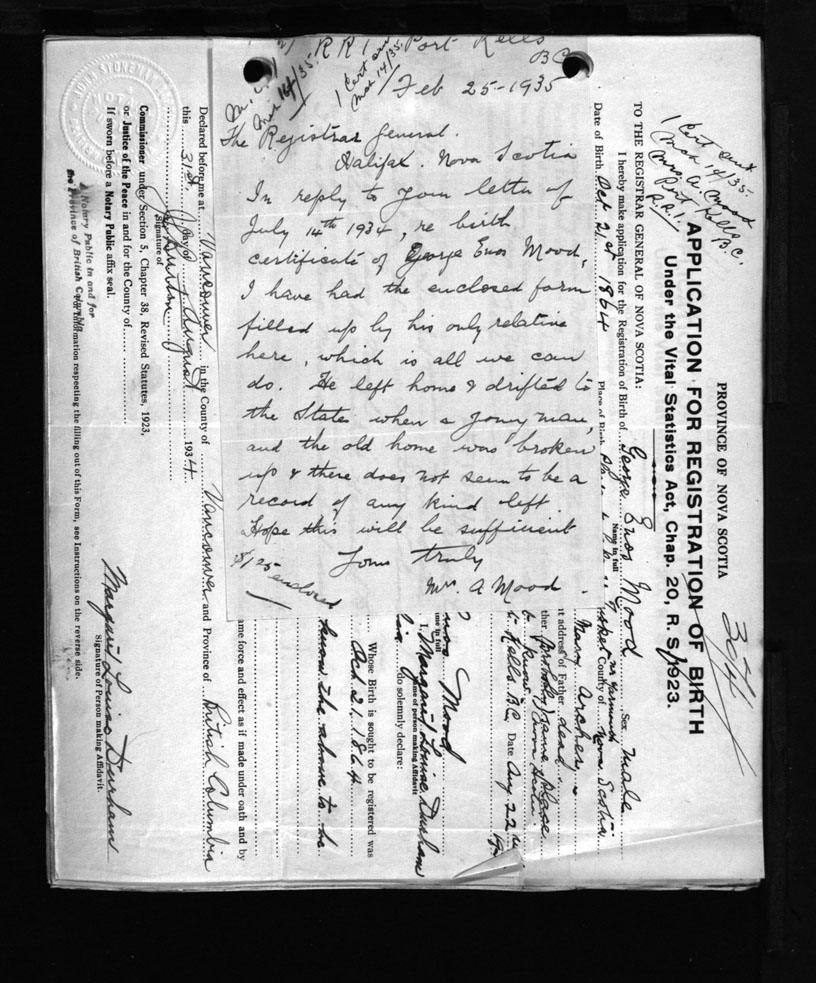 R R 1 Port Kells
B C
Feb 25 - 1935
1 Cert sent
Mar 14/35.
The Registrar General.
Halifax. Nova Scotia
In reply to your letter of
July 14th 1934, re birth
certificate of George Enos Mood,
I have had the enclosed form
filled up by his only relative
here, which is all we can
do. He left home & drifted to
the States when a young man,
and the old home was broken
up & there does not seem to be a
record of any kind left.
Hope this will be sufficient
Yours truly
Mrs. A Mood.
$1.25 enclosed
1 Cert sent
Mar 14/35.
Mrs. A. Mood
Port Kells
B.C.
R.R.1.
PROVINCE OF NOVA SCOTIA
APPLICATION FOR REGISTRATION OF BIRTH
Under the Vital Statistics Act, Chap. 20, R. S. 1923.
TO THE REGISTRAR GENERAL OF NOVA SCOTIA:
I hereby make application for the Registration of Birth of George Enos Mood Sex Male
Name in full
Date of Birth Oct 21st 1864 Place of Birth
nr Yarmouth
County of Nova Scotia
Mary Archer
address of Father dead
same place
know
Kells B.C. Date Aug 22
Mood
Margaret Louise Durham
name of person making Affidavit
do solemnly declare:
Whose Birth is sought to be registered was
Oct 21, 1864
know the above to be
same force and effect as if made under oath and by
Declared before me at Vancouver in the County of Vancouver and Province of British Columbia
this 31st day of August 1934
Signature of
Commissioner under Section 5, Chapter 38, Revised Statutes, 1923,
or Justice of the Peace in and for the County of
If sworn before a Notary Public affix seal.
A Notary Public in and for
the Province of British Columbia
For information respecting the filling out of this Form, see Instructions on the reverse side.
Margaret Louise Durham
Signature of Person making Affidavit.